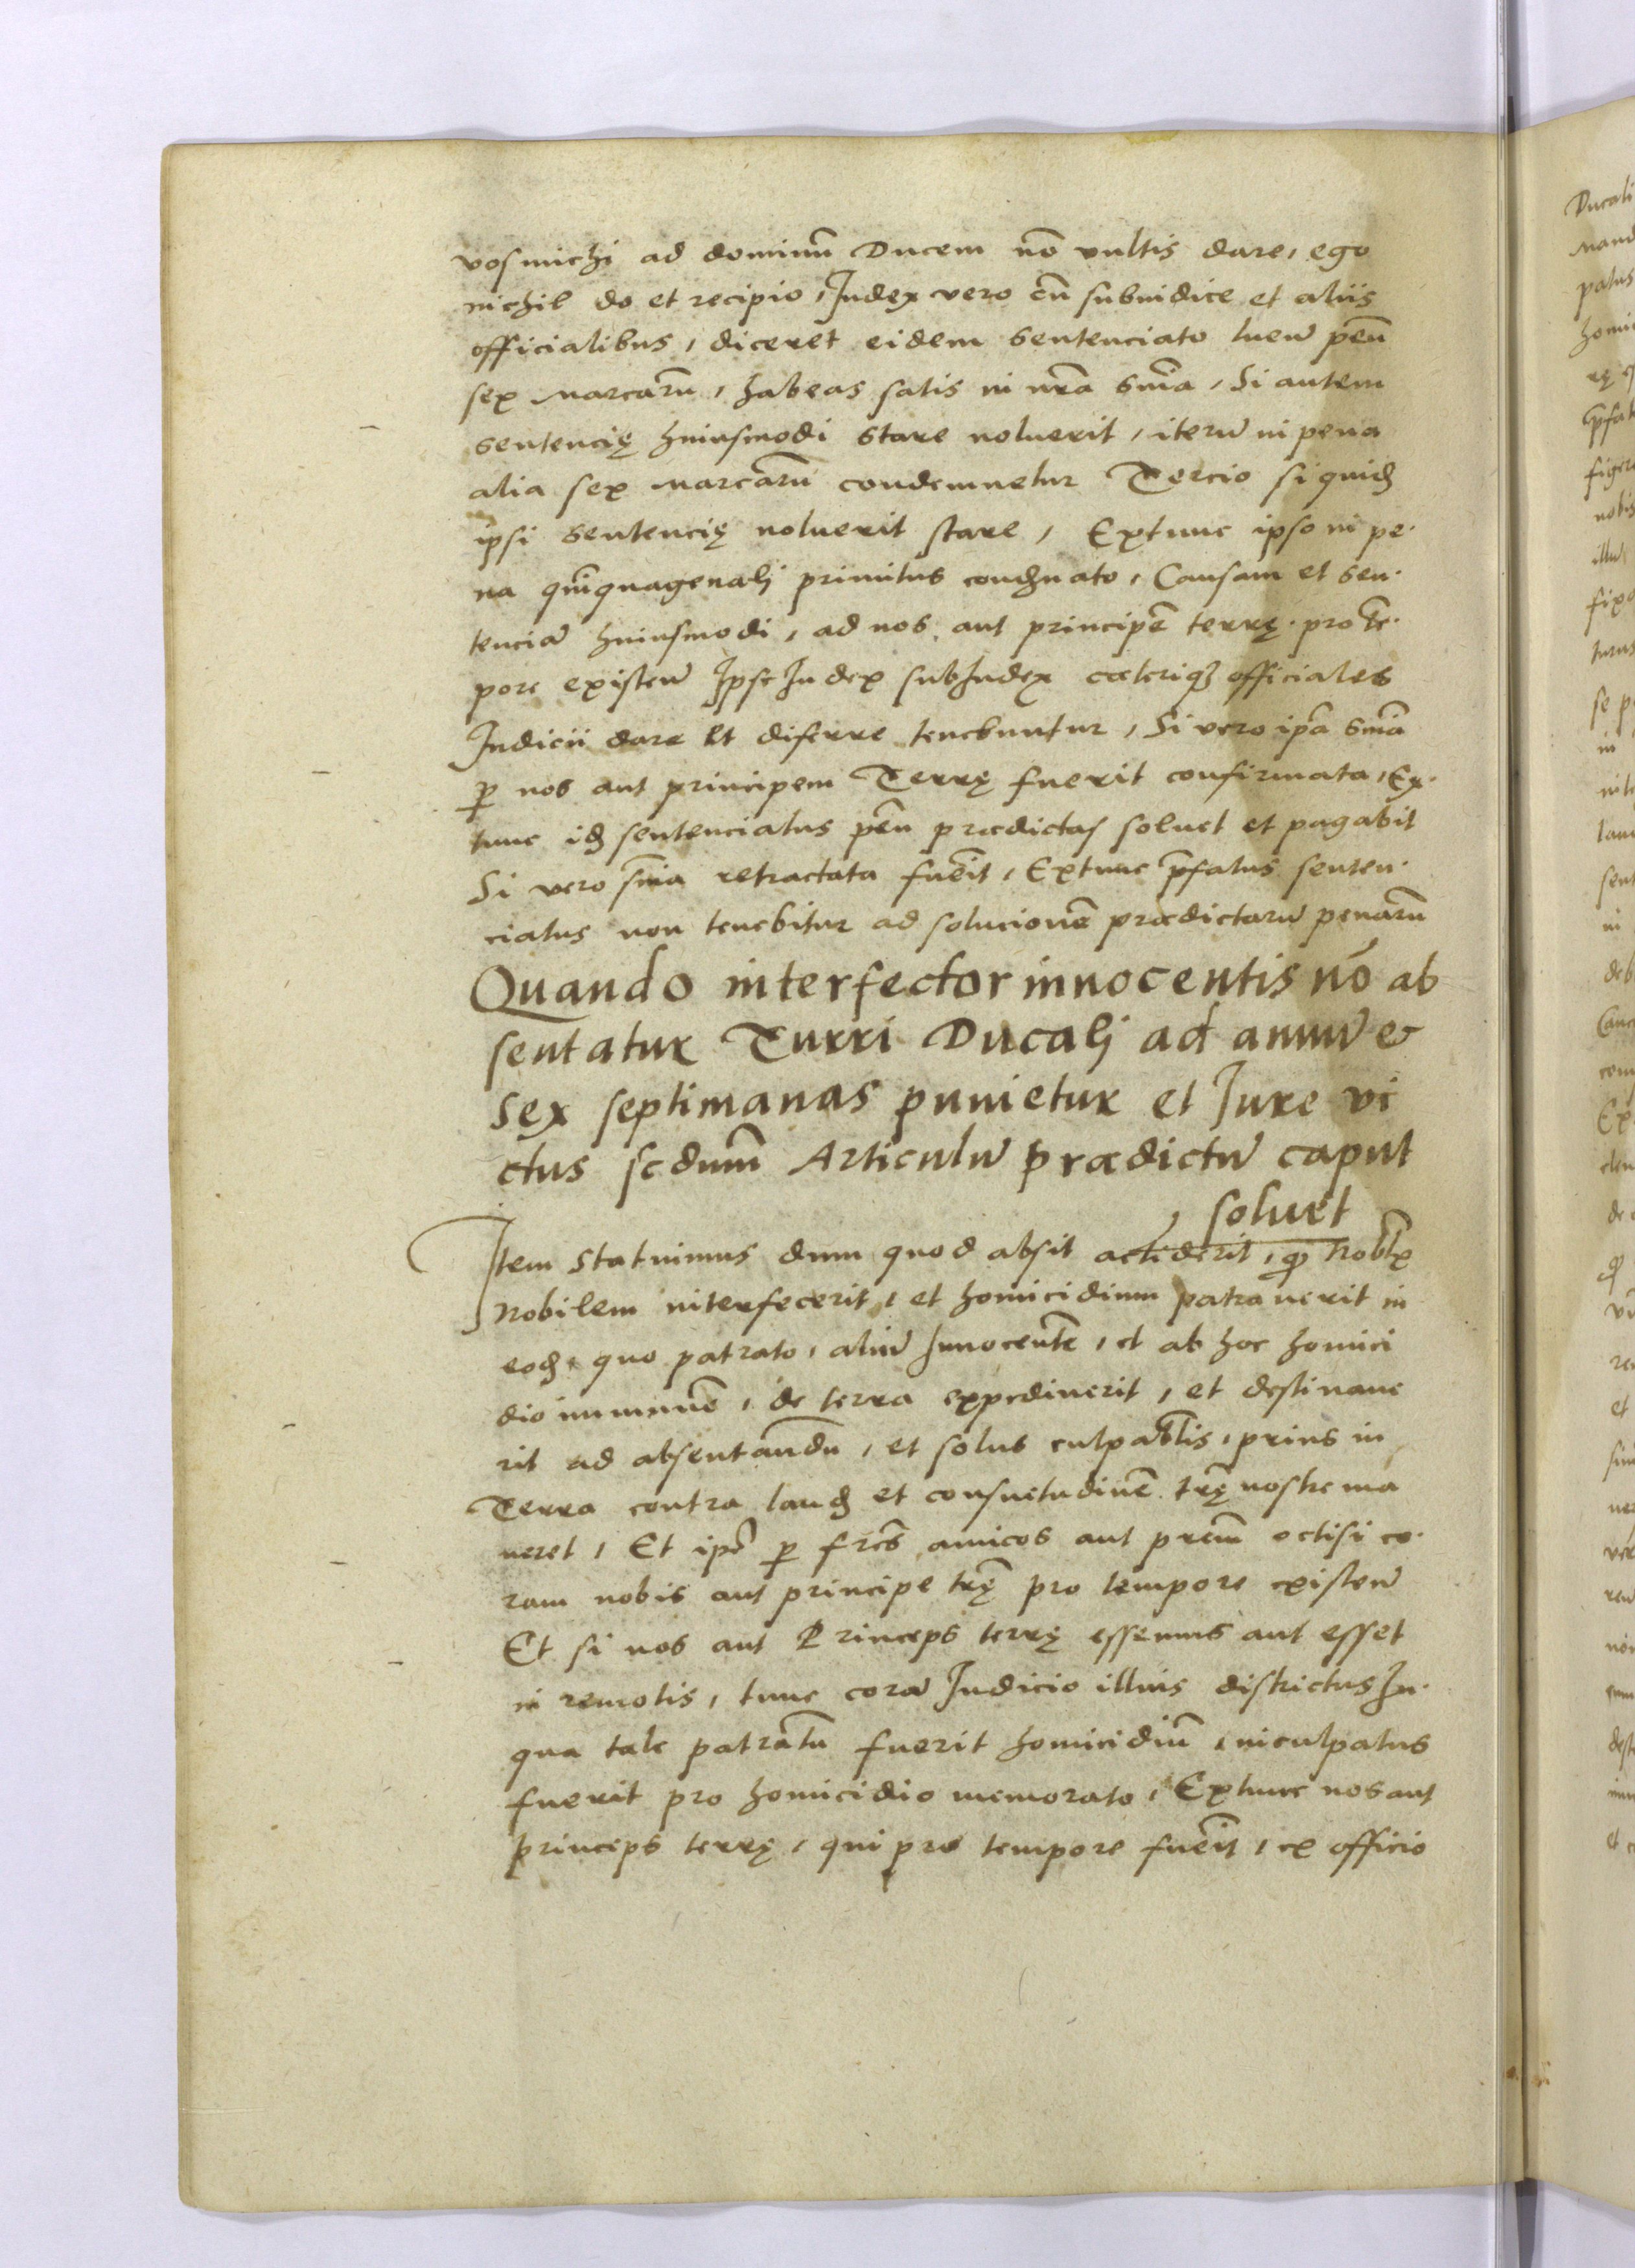 vos michi ad dominū Ducem nō vultis dare, ego
nichil do et recipio, Judex vero cū subiudice et aliis
officialibus, diceret eidem sentenciato luen̄ pen̄
sex marcarū, habeas satis in nr̄a sn̄ia, Si autem
sentencię huiusmodi stare noluerit, iterū in pena
alia sex marcarū condemnetur Tercio siquid̄
ipsi sentencię noluerit stare, Extunc ipso in pe-
na quīquagenalj primitus cond̄nato, Causam et sen-
tenciā huiusmodi, ad nos aut principē terrę pro tē-
pore existen̄ Ipse Judex subJudex cœteriqȝ officiales
Judicii dare et diferre tenebuntur, Si vero ip̄a sn̄ia
ꝑ nos aut principem Terrę fuerit confirmata, Ex-
tunc id̄ sentenciatus pēn prædictas soluet et pagabit
Si vero sn̄ia retractata fuēit, Extunc p̄fatus senten-
ciatus non tenebitur ad solucionē prædictarū penarū
Quando interfector innocentis nō ab
sentatur Turri Ducalj ad annū &
sex septimanas punietur et Jure vi
ctus scdum̄ Articulū prædictū caput
soluet
Item Statuimus dum quod absit acciderit, ꝙ Nobl̄x
Nobilem interfecerit, et homicidium patrauerit in
eod̄, quo patrato, aliū Innocentē, et ab hoc homici
dio immunē, de terra expediuerit, et destinaue
rit ad absentandū, et solus culpabl̄is, prius in
Terra contra laud̄ et consuetudinē tr̄ę nostre ma
neret, Et ip̄e ꝑ fr̄es amicos aut pr̄em occisi co-
ram nobis aut principe tr̄ę pro tempore existen̄
Et si nos aut Princeps terrę essemus aut esset
in remotis, tunc corā Judicio illius districtus In-
qua tale patratū fuerit homicidiū, inculpatus
fuerit pro homicidio memorato, Extunc nos aut
princeps terrę, qui pro tempore fuēit, ex officio